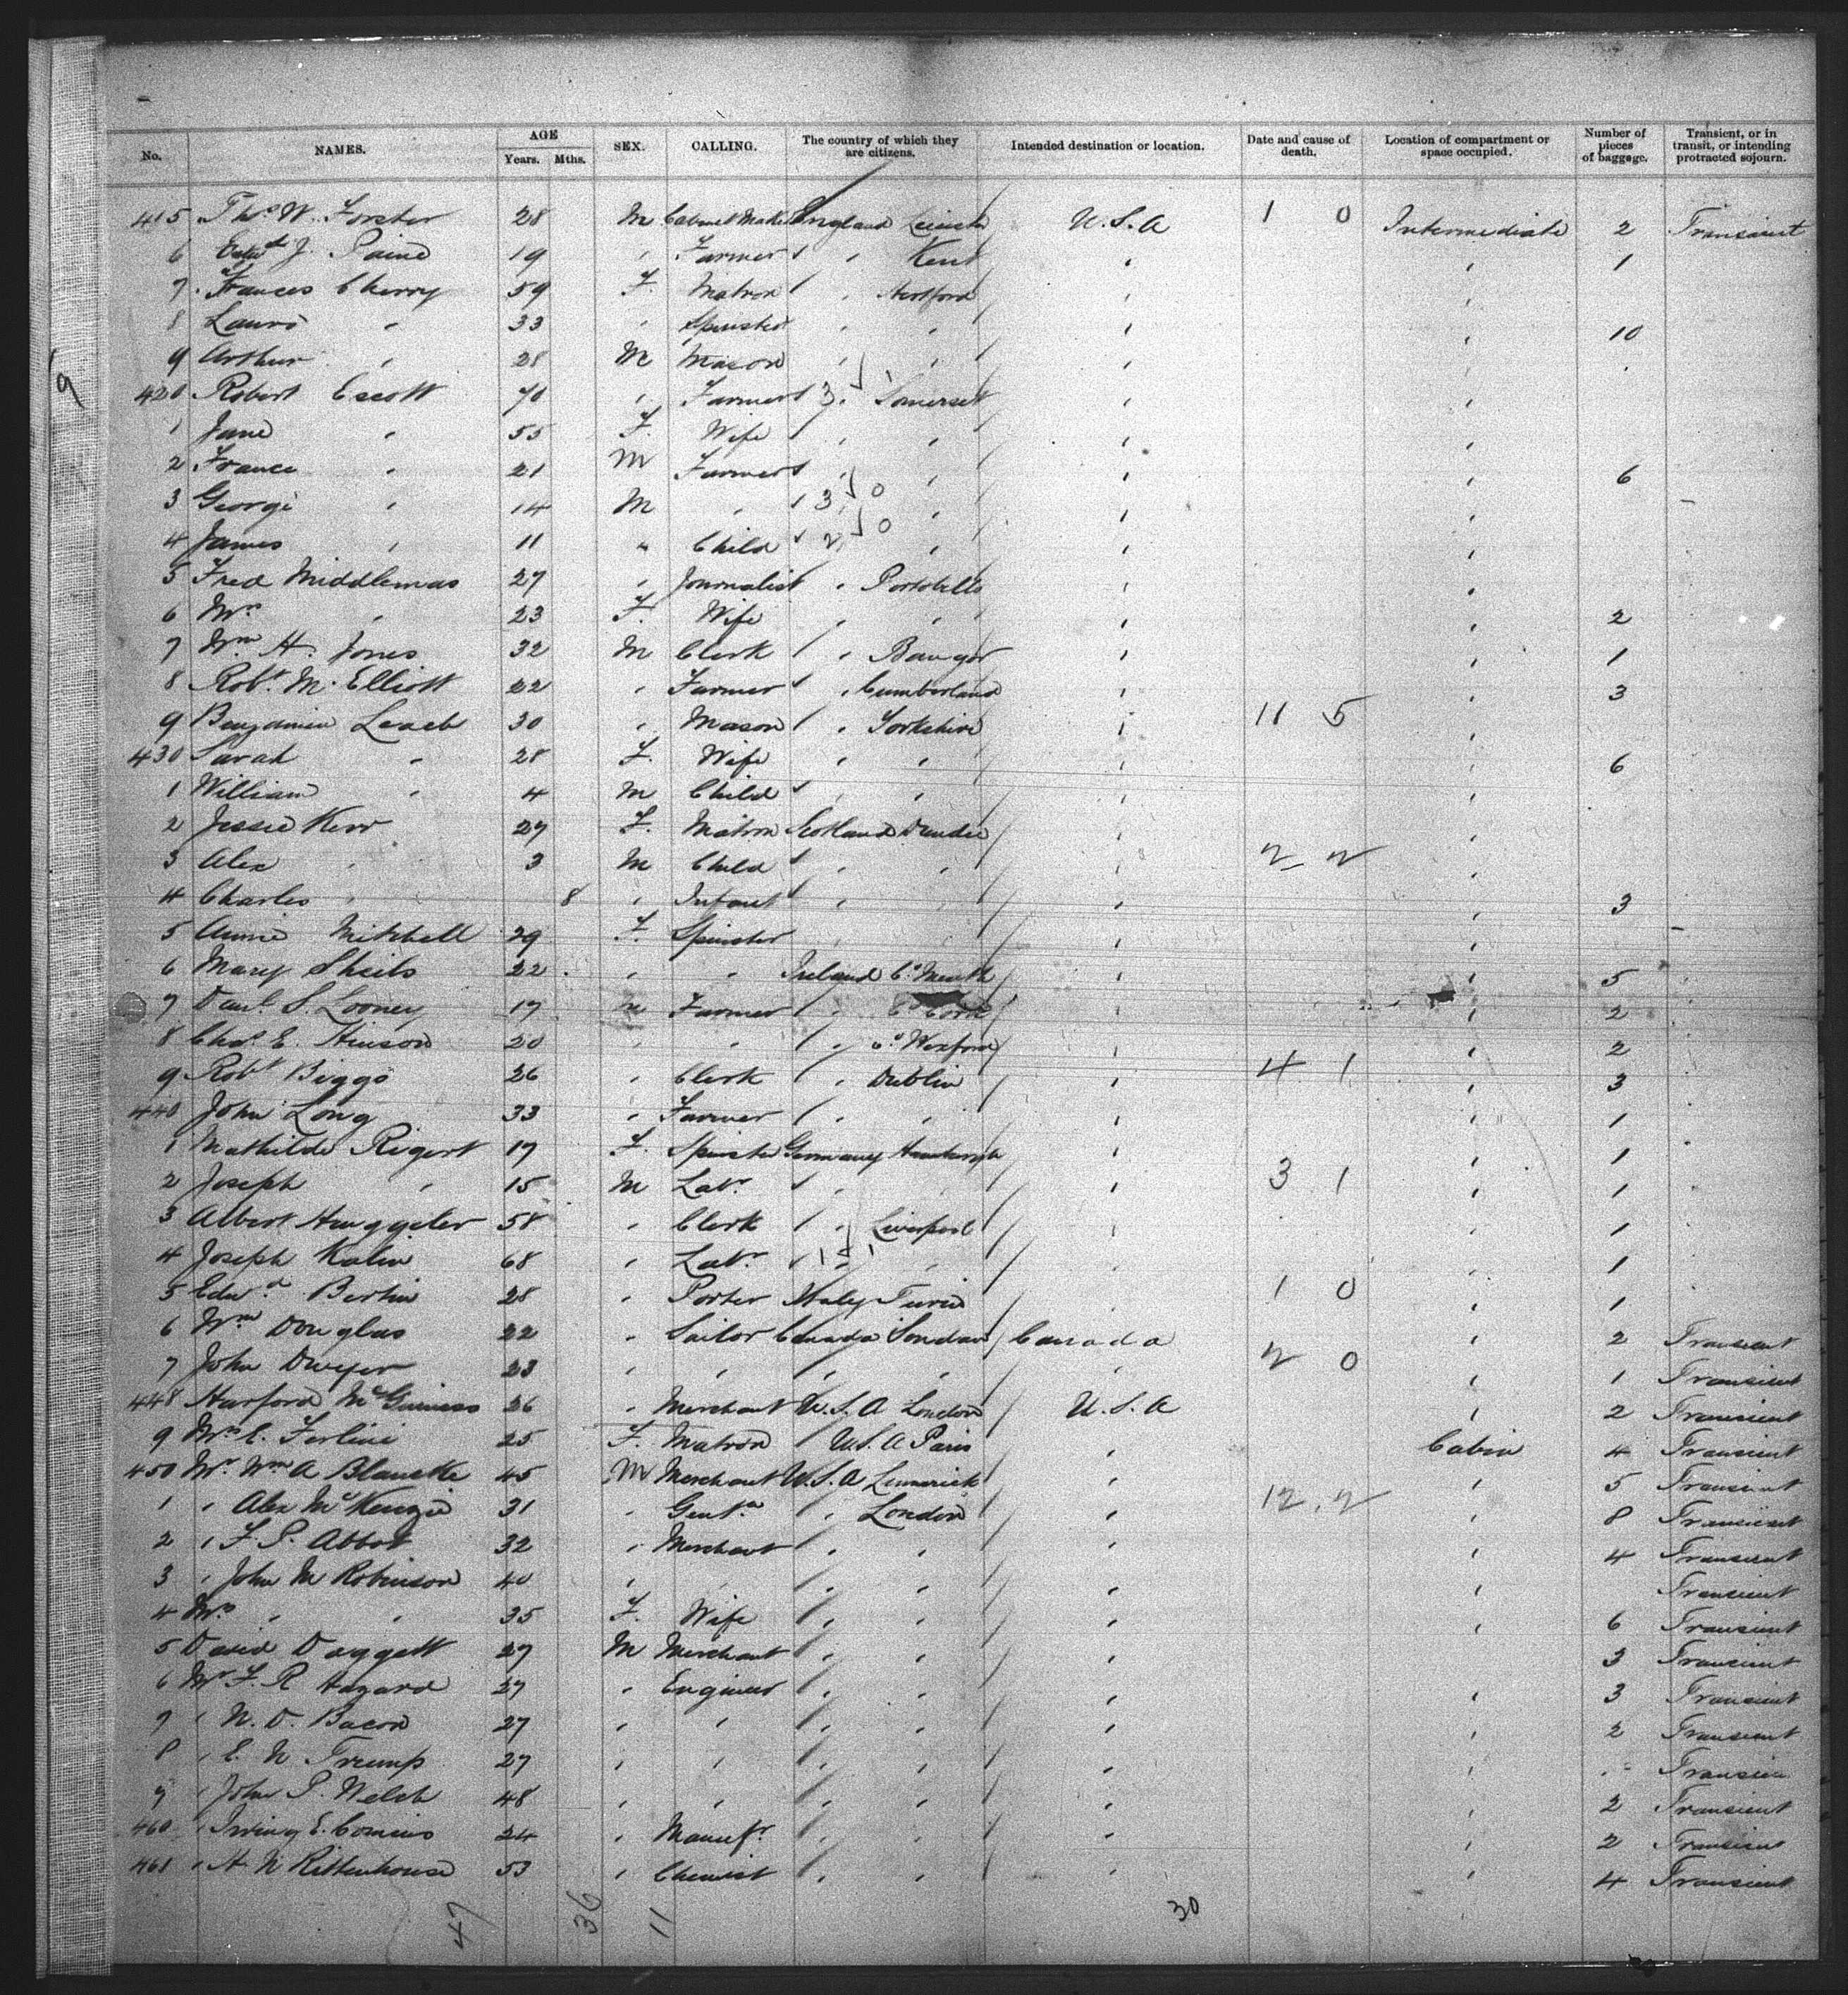 No. NAMES. AGE Years. Mths. SEX. CALLING. The country of which they are citizens. Intended destination or location. Date and cause of death. Location of compartment or space occupied. Number of pieces of baggage. Transient, or in transit, or intending protracted sojourn.
415 Thos W. Forster 28 M Cabinet Maker England U.S.A 1 0 Intermediate 2 Transient
6 Edwd J. Paine 19 " Farmer " Kent " " 1
7 Frances Cherry 59 F. Matron " Hertford " "
8 Laura " 33 " Spinster " " " " 10
9 Arthur " 28 M Mason " " " "
420 Robert Escott 70 " Farmer 3 Somerset " "
1 Jane " 55 F. Wife " " " "
2 France " 21 M Farmer " " " " 6
3 George " 14 M " 3 0 " " "
4 James " 11 " Child 2 0 " " "
5 Fred Middlemas 27 " Journalist " Portobello " "
6 Mrs " 23 F. Wife " " " " 2
7 Wm H. Jones 32 M Clerk " Bangor " " 1
8 Robt. M. Elliott 22 " Farmer " Cumberland " " 3
9 Benjamin Leach 30 " Mason " Yorkshire " 11 5 "
430 Sarah " 28 F. Wife " " " " 6
1 William " 4 M Child " " " "
2 Jessie Kerr 27 F. Matron Scotland Dundee " "
3 Alex " 3 M Child " " " 2 2 "
4 Charles " 8 " Infant " " " " 3
5 Annie Mitchell 29 F. Spinster " "
6 Mary Sheils 22 " " Ireland Co. Meath " " 5
7 Danl. S. Looney 17 M Farmer " Co Cork " " 2
8 Chas. E. Hinson 20 " " " Co. Wexford " " 2
9 Robt Biggs 26 " Clerk " Dublin " 4 1 " 3
440 John Long 33 " Farmer " " " " 1
1 Mathilde Rigert 17 F. Spinster Germany Hamburgh " " 1
2 Joseph " 15 M Labr. " " " 3 1 " 1
3 Albert Huggeler 58 " Clerk " Liverpool " " 1
4 Joseph Kalin 68 " Labr. " " " 1
5 Edwd. Bertin 28 " Porter Italy Turin " 1 0 " 1
6 Wm Douglas 22 " Sailor Canada London Canada " 2 Transient
7 John Dwyer 23 " " " " " 2 0 " 1 Transient
448 Harford McGuiness 26 " Merchant U.S.A London U.S.A " 2 Transient
9 Mrs. E. Ferline 25 F. Matron U.S.A Paris " Cabin 4 Transient
450 Mr. Wm A Blancke 45 M Merchant U.S.A Limerick " " 5 Transient
1 " Alex McKenzie 31 " Gentn " London " 12 2 " 8 Transient
2 " F. P. Abbot 32 " Merchant " " " " 4 Transient
3 " John M Robinson 40 " " " " " Transient
4 Mrs " " 35 F. Wife " " " " 6 Transient
5 David Daggett 27 M Merchant " " " 3 Transient
6 Mr F. R Hazard 27 " Engineer " " " " 3 Transient
7 " N. D. Bacon 27 " " " " " " 2 Transient
8 " E. N Trump 27 " " " " " " Transien
9 " John P. Welch 48 " " " " " " 2 Transient
460 " Irving E. Comins 24 " Manufr. " " " " 2 Transient
461 " H. N Rittenhouse 53 " Chemist " " " " 4 Transient
47 36 11 30
9